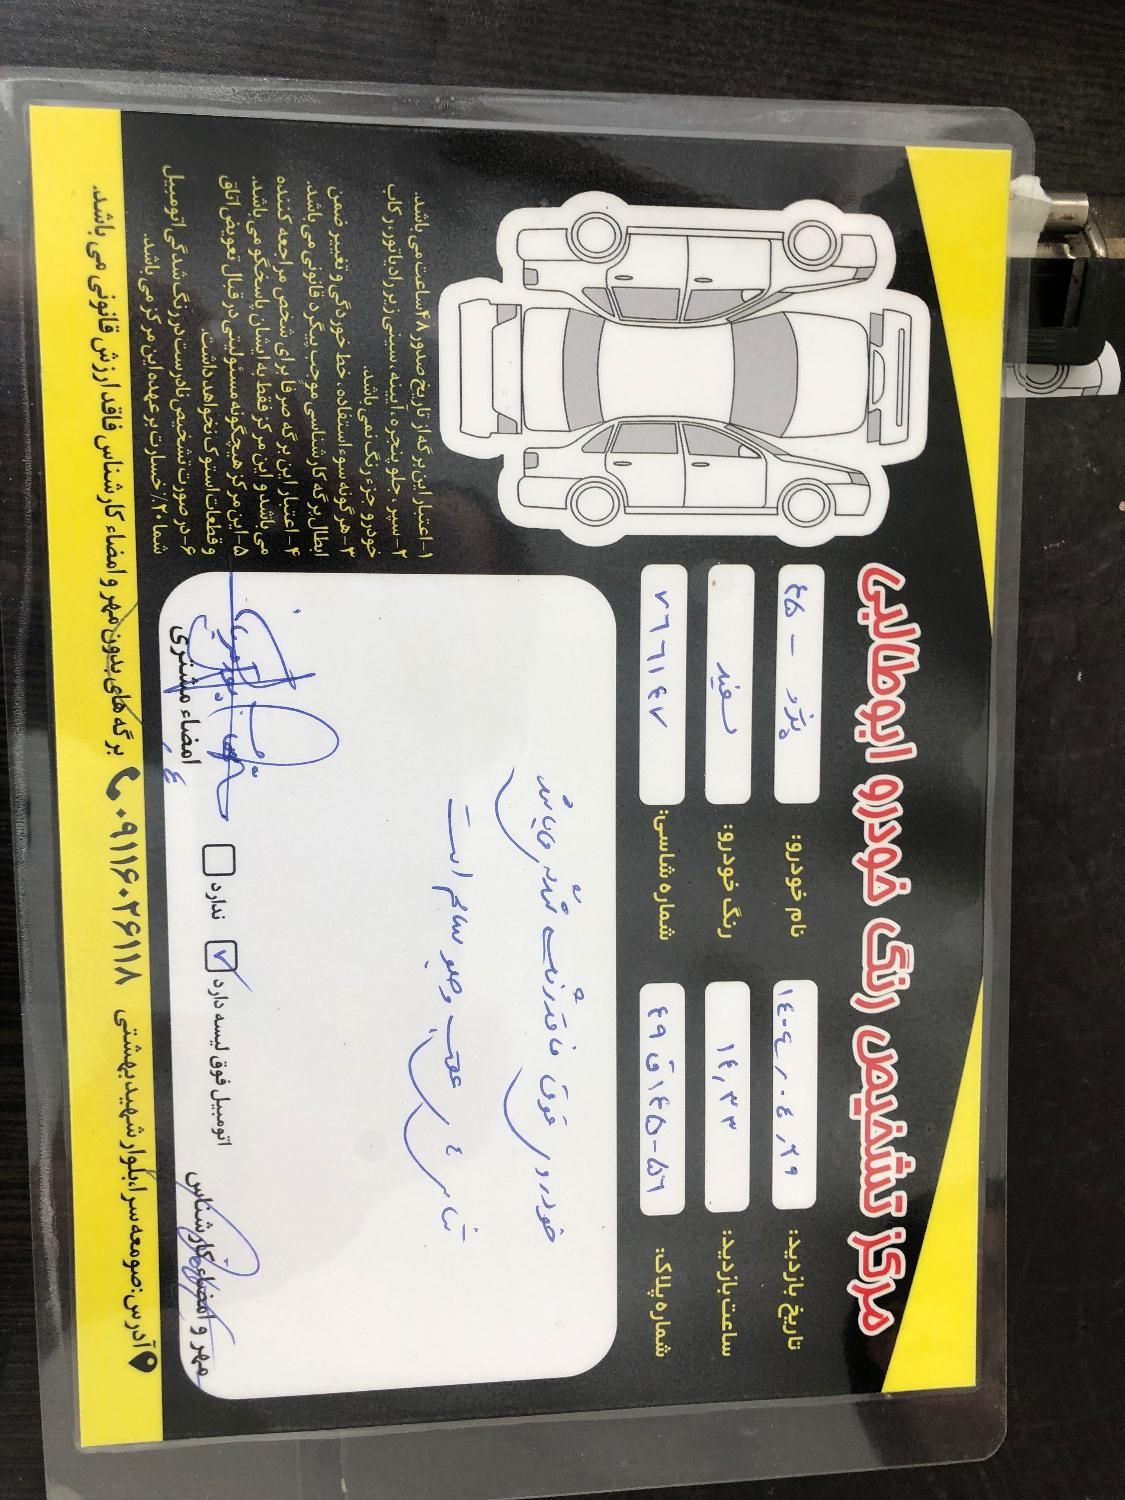 مرکز تشخیص رنگ خودرو ابوطالبی
تاریخ بازدید: ۱۴۰۴،۰۴،۲۹
نام خودرو: پژو - ۴۵
ساعت بازدید: ۱۴،۳۳
رنگ خودرو: سفید
شماره پلاک: ۵۶-۱۴۵ق۴۹
شماره شاسی: ۷۶۶۱۴۷
خودرو فوق فاقد رنگ شدگی میباشد
شاسی عقب و جلو سالم است
۱- اعتبار این برگه از تاریخ صدور ۴۸ ساعت می باشد.
۲- سپر، جلو پنجره، آیینه، سینی زیر رادیاتور و رکاب
خودرو جزء رنگ نمی باشد.
۳- هرگونه سوء استفاده، خط خوردگی و تغییر ضمن
ابطال برگه کارشناسی موجب پیگرد قانونی می باشد.
۴- اعتبار این برگه صرفا برای شخص مراجعه کننده
می باشد و این مرکز فقط به ایشان پاسخگو می باشد.
۵- این مرکز هیچگونه مسئولیتی در قبال تعویض اتاق
و قطعات استوک نخواهد داشت.
۶- در صورت تشخیص نادرست در رنگ شدگی اتومبیل
شما ۲۰٪ خسارت بر عهده این مرکز می باشد.
مهر و امضاء کارشناس
اتومبیل فوق لیسه دارد ✓ ندارد
امضاء مشتری
آدرس: صومعه سرا، بلوار شهید بهشتی ۰۹۱۱۶۰۲۶۱۱۸ برگه های بدون مهر و امضاء کارشناس فاقد ارزش قانونی می باشد.